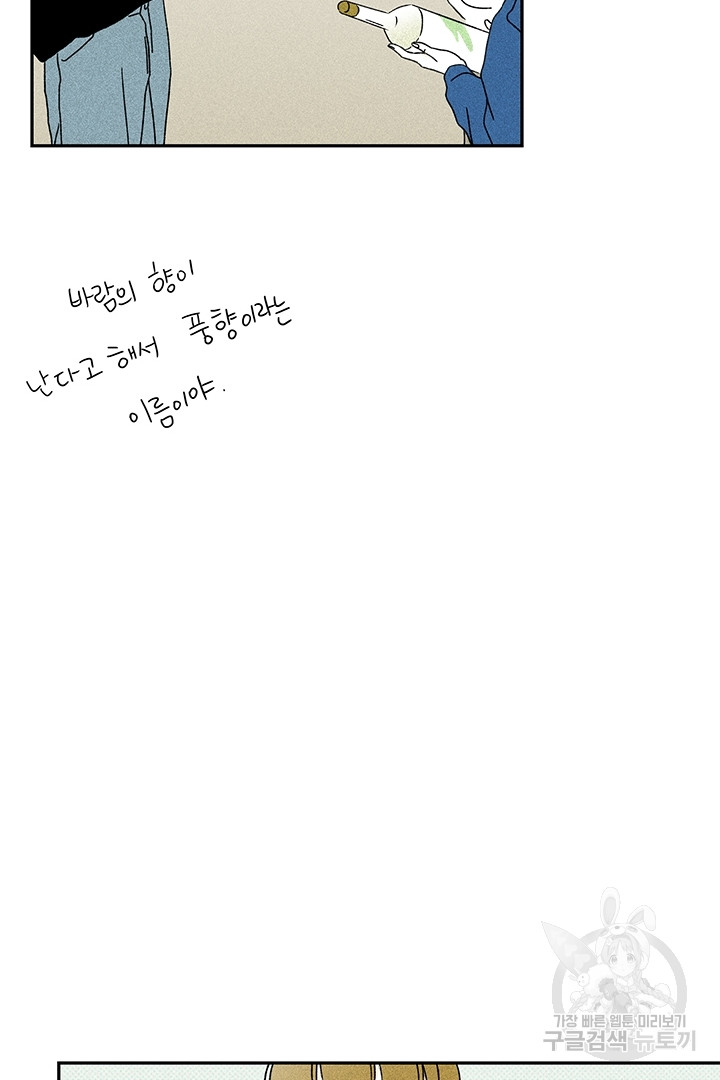 바람의 향이
난다고 해서 풍향이라는
이름이야.
가장 빠른 웹툰 미리보기
구글검색 뉴토끼